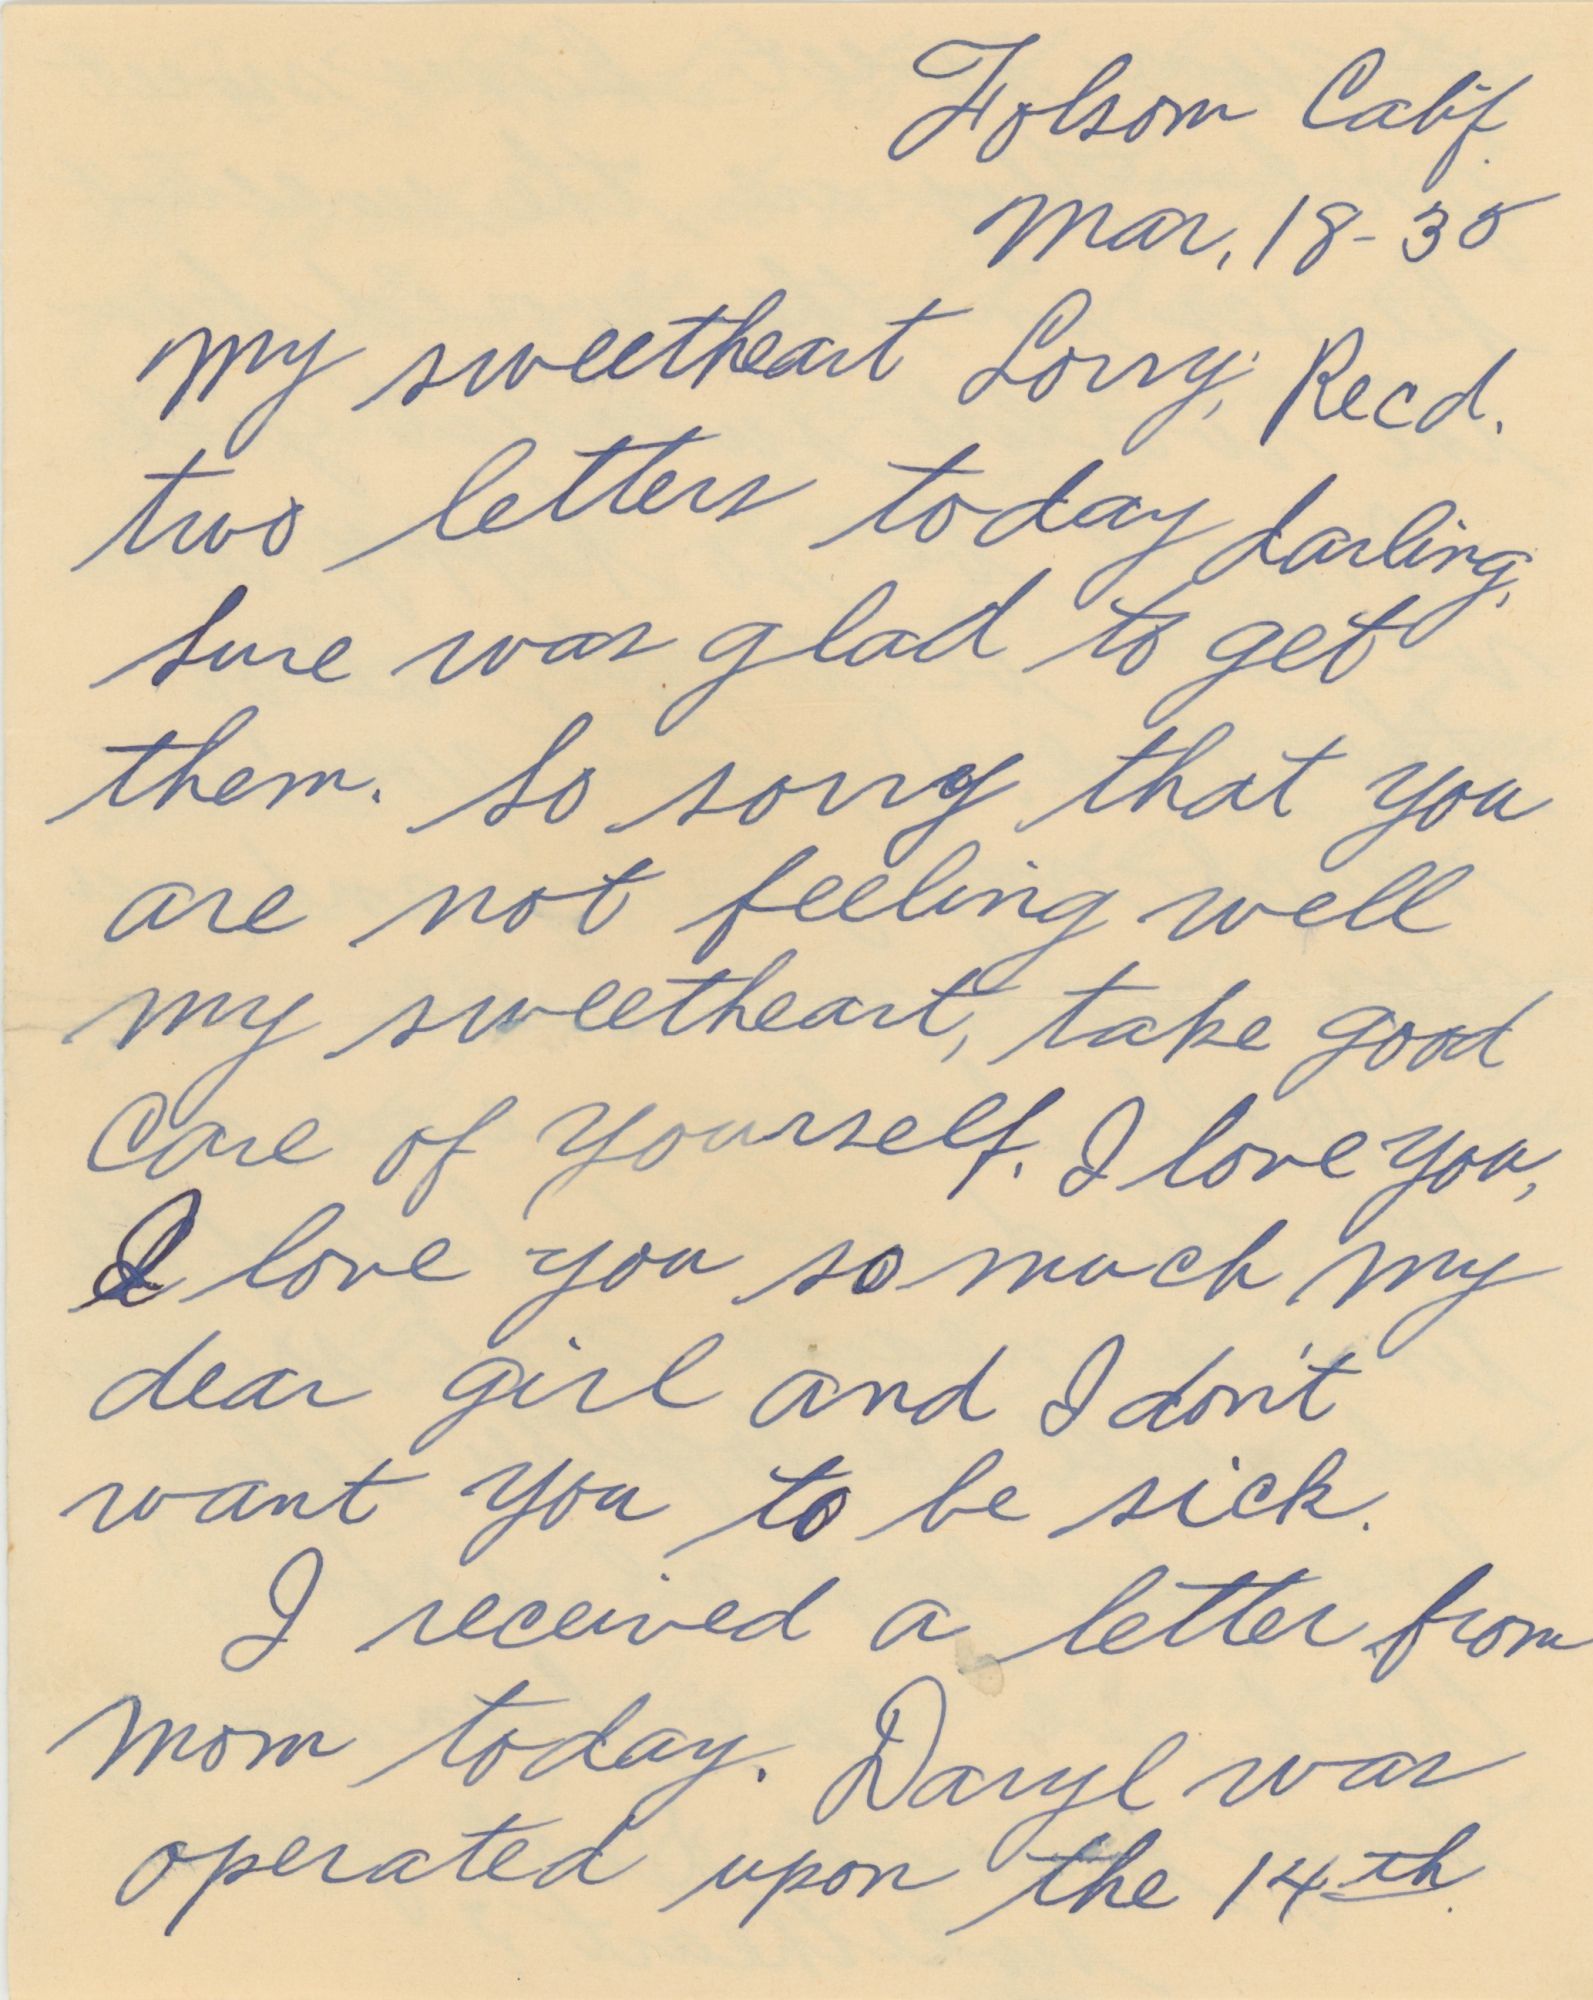 Folsom Calif.
Mar, 18-35
My sweetheart Lorry; Recd.
two letters today darling,
sure was glad to get
them. So sorry that you
are not feeling well
my sweetheart, take good
Care of yourself. I love you,
I love you so much my
dear girl and I don't
want you to be sick.
I received a letter from
Mom today. Daryl was
operated upon the 14th.